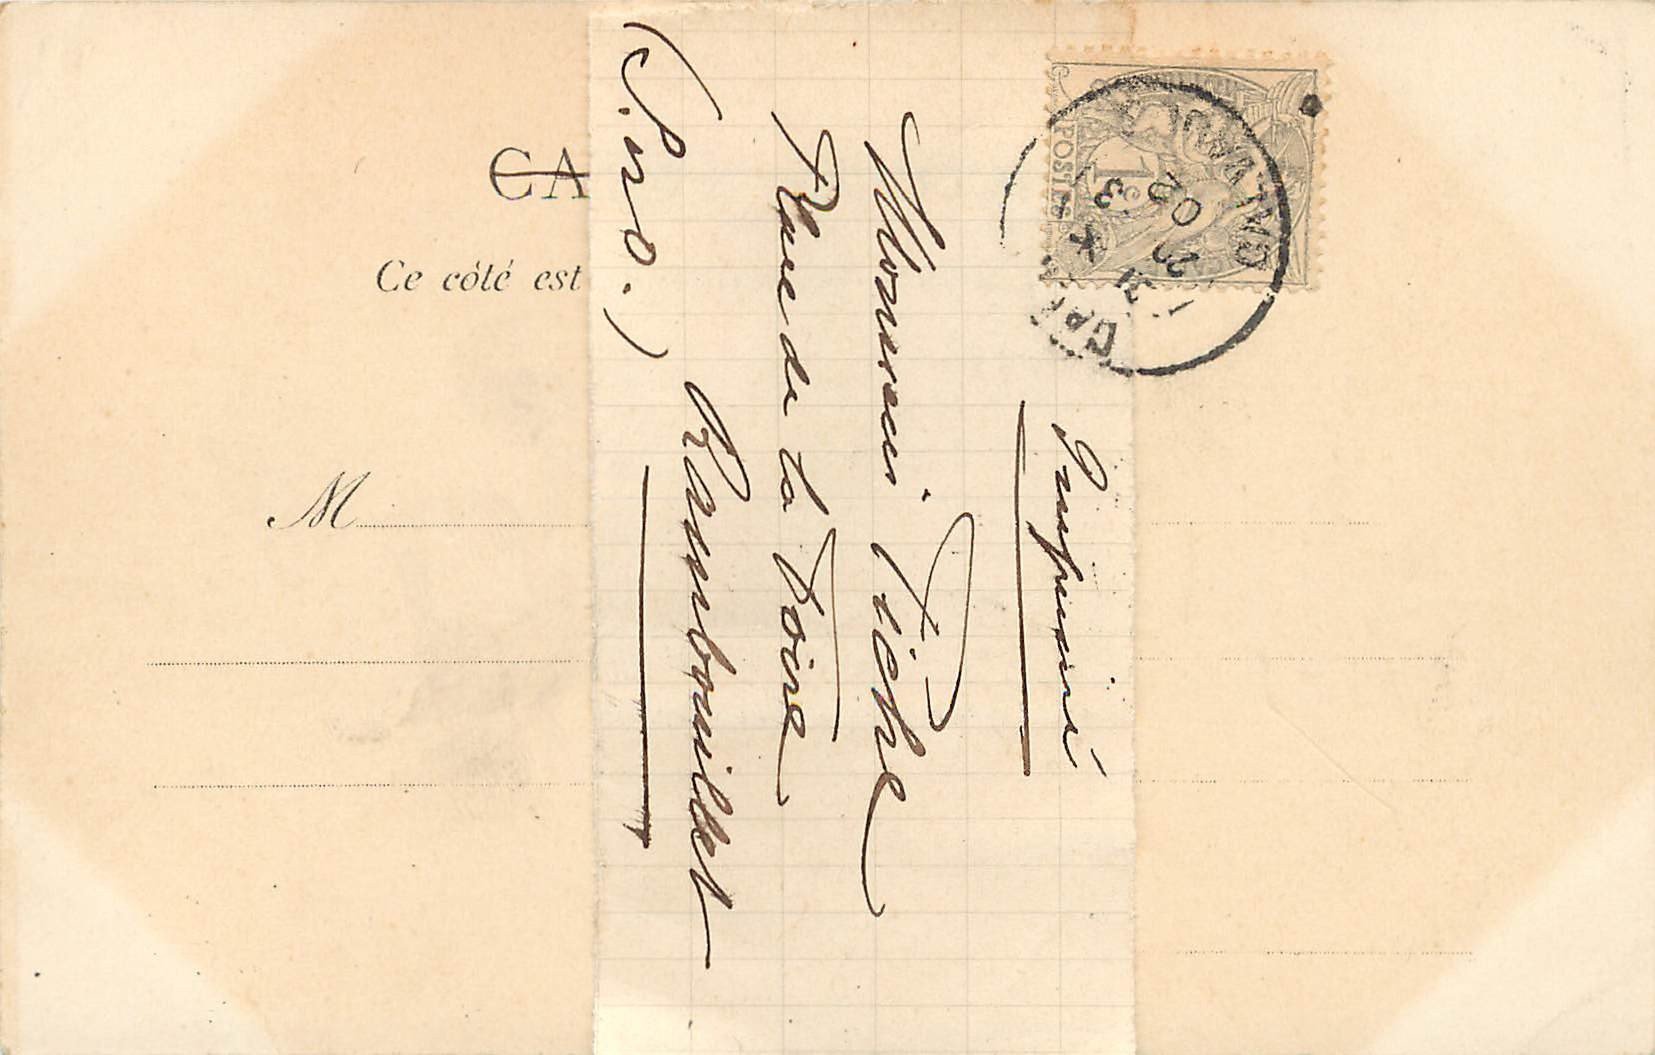 CA
Ce côté est
M
Imprimé
Monsieur Piche
Place de la Foire
Rambouillet
(S. & O.)
POSTES
1c
3
02